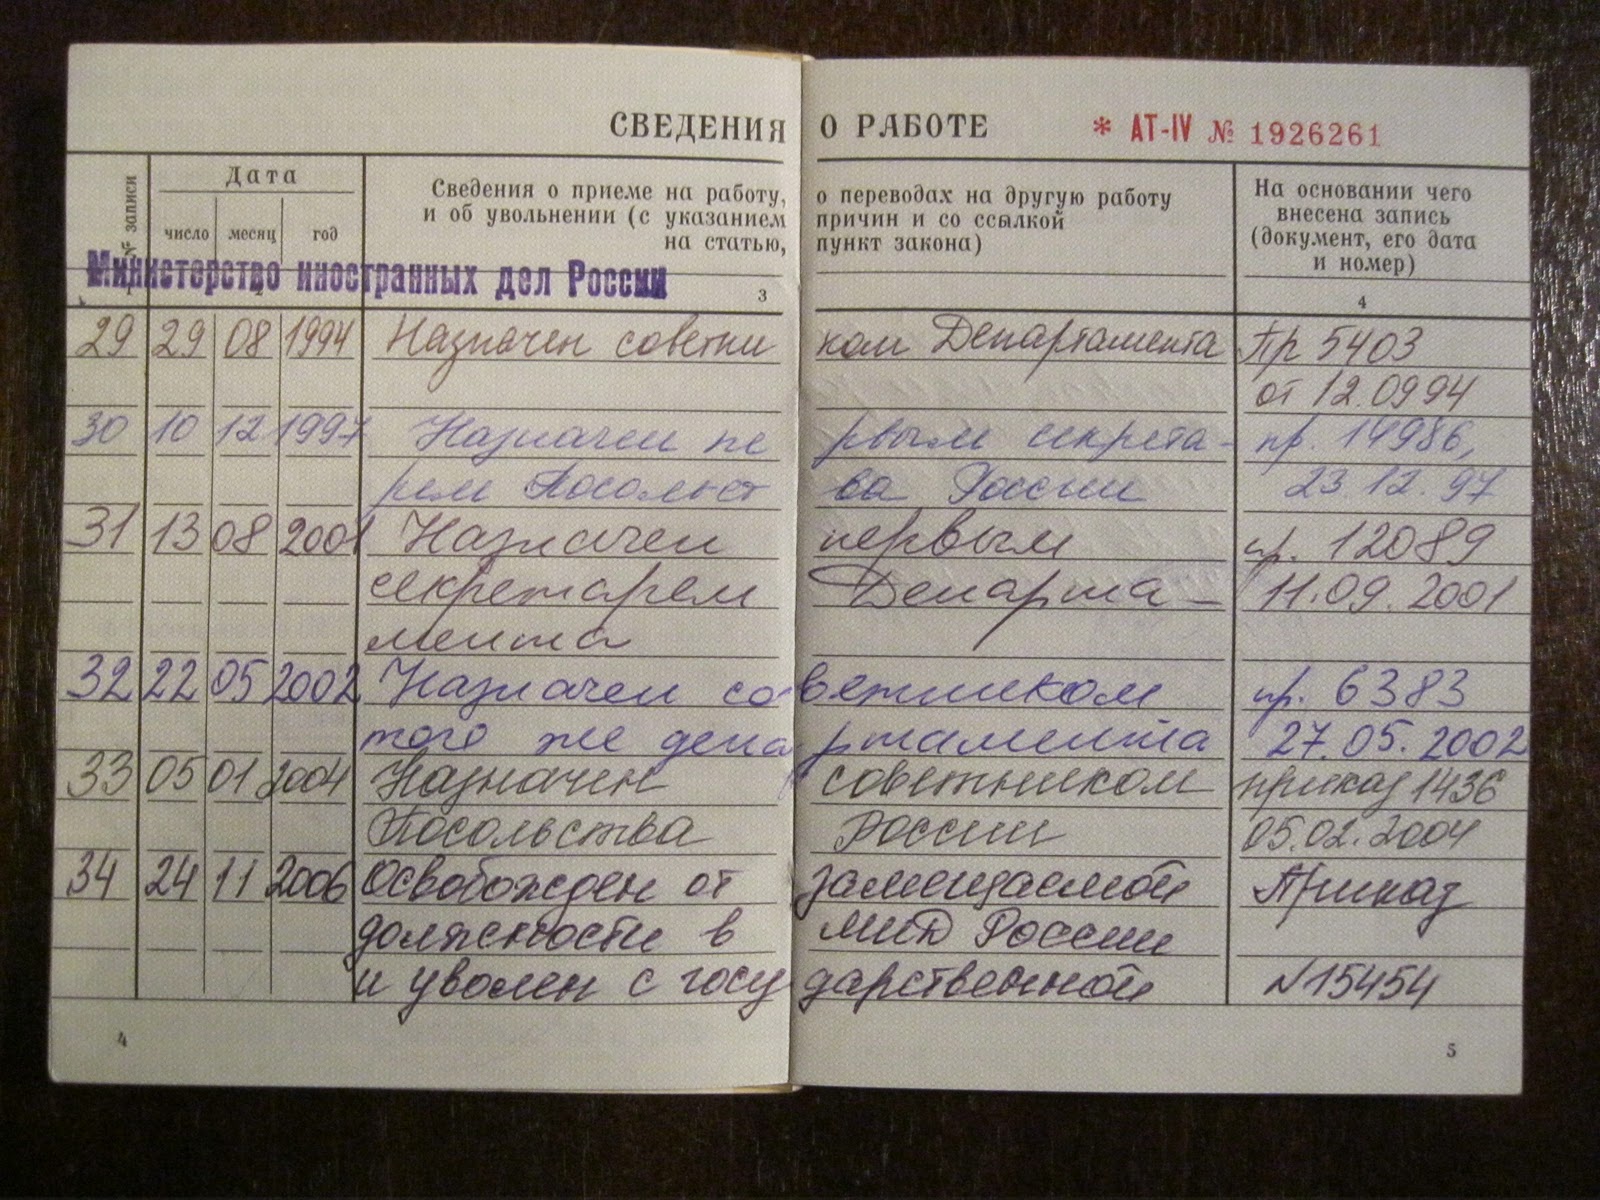 СВЕДЕНИЯ О РАБОТЕ * АТ-IV № 1926261
№ записи
Дата
число месяц год
Сведения о приеме на работу, о переводах на другую работу
и об увольнении (с указанием причин и со ссылкой
на статью, пункт закона)
На основании чего
внесена запись
(документ, его дата
и номер)
Министерство иностранных дел России
3 4
29 29 08 1994 Назначен советником Департамента Пр 5403
от 12.0994
30 10 12 1997 Назначен первым секрета- пр. 14986,
рем Посольства России 23.12.97
31 13 08 2001 Назначен первым пр. 12089
секретарем Департа- 11.09.2001
мента
32 22 05 2002 Назначен советником пр. 6383
того же департамента 27.05.2002
33 05 01 2004 Назначен советником приказ 1436
Посольства России 05.02.2004
34 24 11 2006 Освобожден от замещаемой Приказ
должности в МИД России
и уволен с государственной N15454
4 5